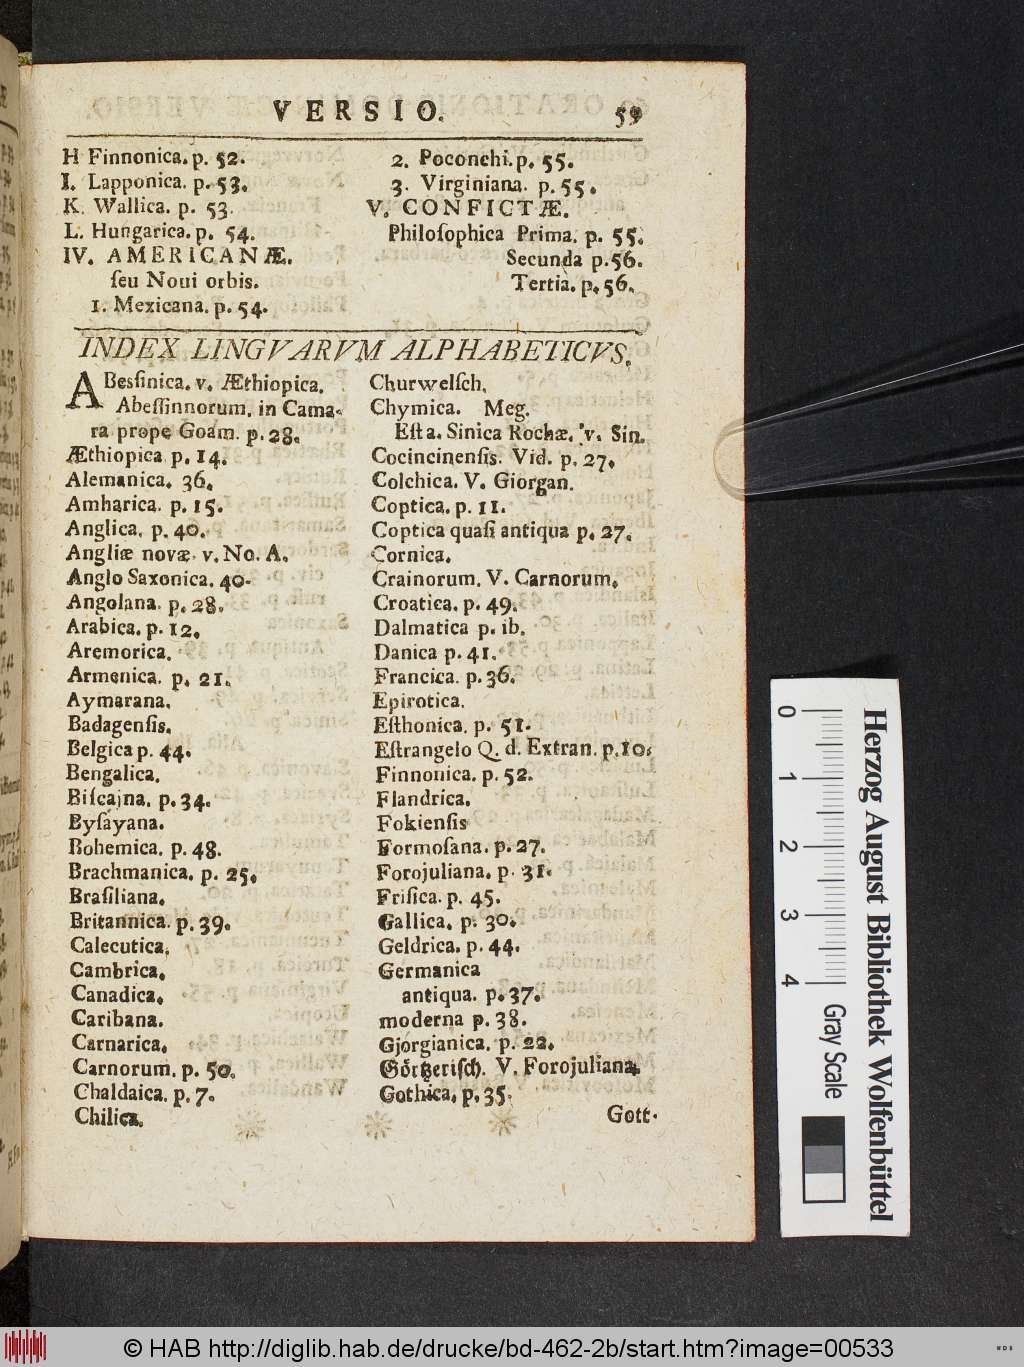 VERSIO. 59
H Finnonica. p. 52.
I. Lapponica. p. 53.
K. Wallica. p. 53.
L. Hungarica. p. 54.
IV. AMERICANÆ.
ſeu Noui orbis.
1. Mexicana. p. 54.
2. Poconchi. p. 55.
3. Virginiana. p. 55.
V. CONFICTÆ.
Philoſophica Prima. p. 55.
Secunda p. 56.
Tertia. p. 56.
INDEX LINGVARVM ALPHABETICVS.
ABesſinica. v. Æthiopica.
Abeſſinnorum. in Cama-
ra prope Goam. p. 28.
Æthiopica p. 14.
Alemanica. 36.
Amharica. p. 15.
Anglica. p. 40.
Angliæ novæ. v. No. A.
Anglo Saxonica. 40.
Angolana. p. 28.
Arabica. p. 12.
Aremorica.
Armenica. p. 21.
Aymarana.
Badagenſis.
Belgica p. 44.
Bengalica.
Biſcajna. p. 34.
Byſayana.
Bohemica. p. 48.
Brachmanica. p. 25.
Braſiliana.
Britannica. p. 39.
Calecutica.
Cambrica.
Canadica.
Caribana.
Carnarica.
Carnorum. p. 50.
Chaldaica. p. 7.
Chilica.
Churwelſch.
Chymica. Meg.
Eſt a. Sinica Rochæ. v. Sin.
Cocincinenſis. Vid. p. 27.
Colchica. V. Giorgan.
Coptica. p. 11.
Coptica quaſi antiqua p. 27.
Cornica.
Crainorum. V. Carnorum.
Croatica. p. 49.
Dalmatica p. ib.
Danica p. 41.
Francica. p. 36.
Epirotica.
Eſthonica. p. 51.
Eſtrangelo Q. d. Extran. p. 10.
Finnonica. p. 52.
Flandrica.
Fokienſis
Formoſana. p. 27.
Forojuliana. p. 31.
Friſica. p. 45.
Gallica. p. 30.
Geldrica. p. 44.
Germanica
antiqua. p. 37.
moderna p. 38.
Gjorgianica. p. 22.
Görtzeriſch. V. Forojuliana.
Gothica. p. 35.
Gott-
0 1 2 3 4
Gray Scale
Herzog August Bibliothek Wolfenbüttel
© HAB http://diglib.hab.de/drucke/bd-462-2b/start.htm?image=00533